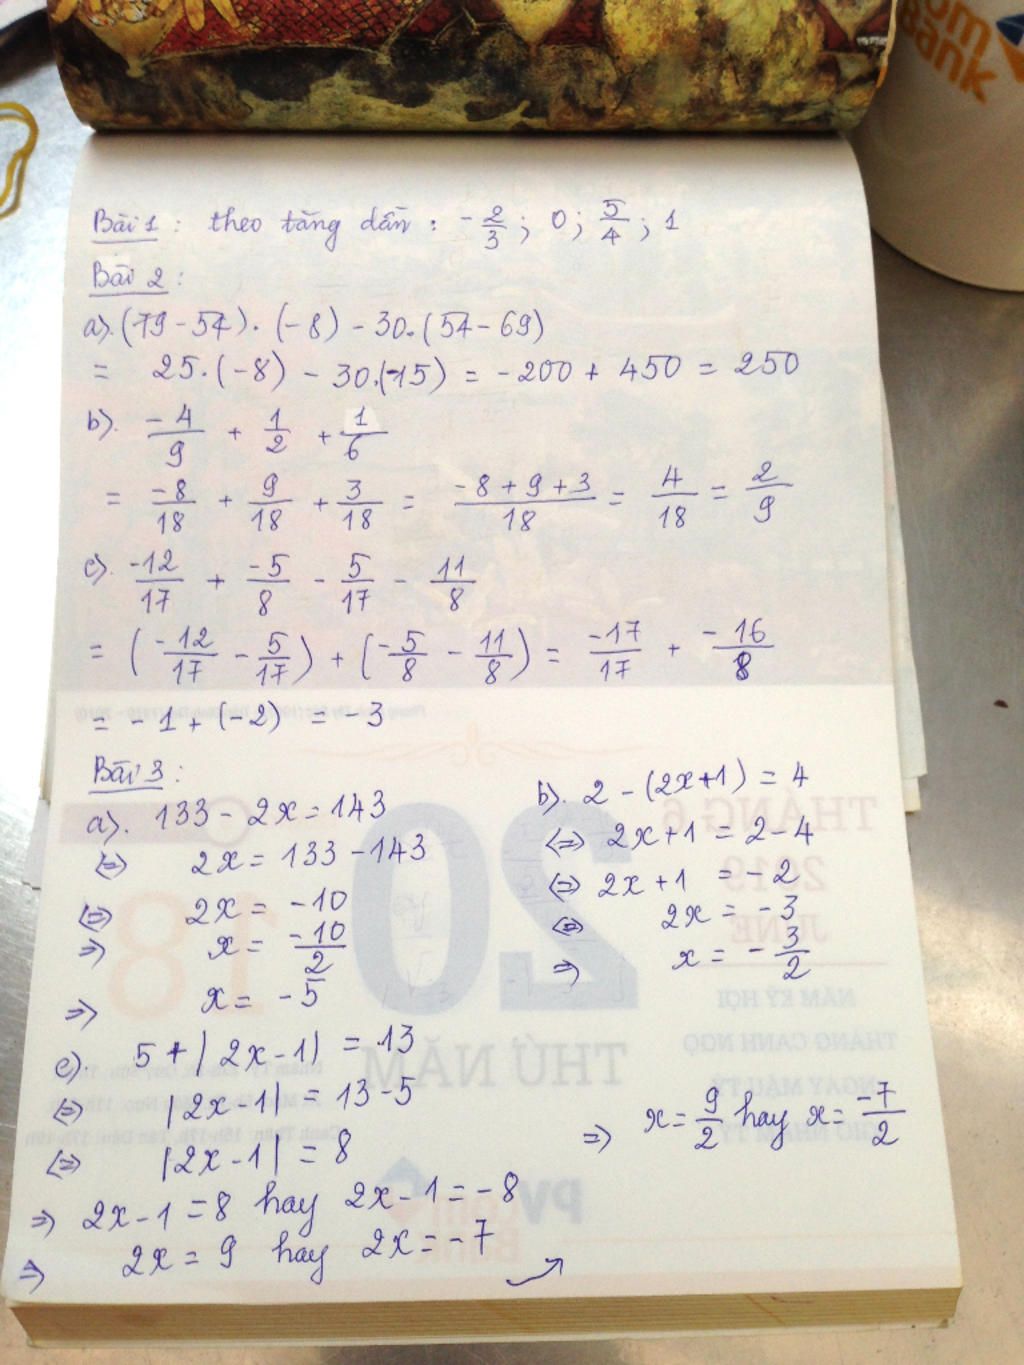 om
Bank
Bài 1 : theo tăng dần : - 2/3 ; 0 ; 5/4 ; 1
Bài 2 :
a). (79 - 54) . (-8) - 30. (54 - 69)
= 25. (-8) - 30.(-15) = -200 + 450 = 250
b). -4/9 + 1/2 + 1/6
= -8/18 + 9/18 + 3/18 = (-8 + 9 + 3)/18 = 4/18 = 2/9
c). -12/17 + -5/8 - 5/17 - 11/8
= (-12/17 - 5/17) + (-5/8 - 11/8) = -17/17 + -16/8
= -1 + (-2) = -3
Bài 3 :
a). 133 - 2x = 143
⇔ 2x = 133 - 143
⇔ 2x = -10
⇒ x = -10/2
⇒ x = -5
b). 2 - (2x+1) = 4
⇔ 2x+1 = 2-4
⇔ 2x+1 = -2
⇔ 2x = -3
⇒ x = - 3/2
c). 5 + |2x-1| = 13
⇔ |2x-1| = 13-5
⇔ |2x-1| = 8
⇒ 2x-1 = 8 hay 2x-1 = -8
⇒ 2x = 9 hay 2x = -7
⇒ x = 9/2 hay x = -7/2
THÁNG 6
2019
JUNE
20
18
THỨ NĂM
NĂM KỶ HỢI
THÁNG CANH NGỌ
NGÀY MẬU TÝ
PV
com
Bank